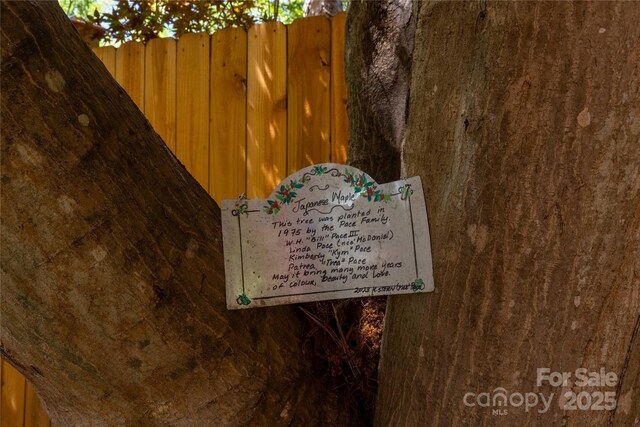 Japanese Maple
This tree was planted in
1975 by the Pace Family.
W.H. "Bill" Pace III
Linda Pace (née McDaniel)
Kimberly "Kym" Pace
Patrea, "Trea" Pace
May it bring many more years
of colour, beauty and love.
2023
For Sale
canopy 2025
MLS